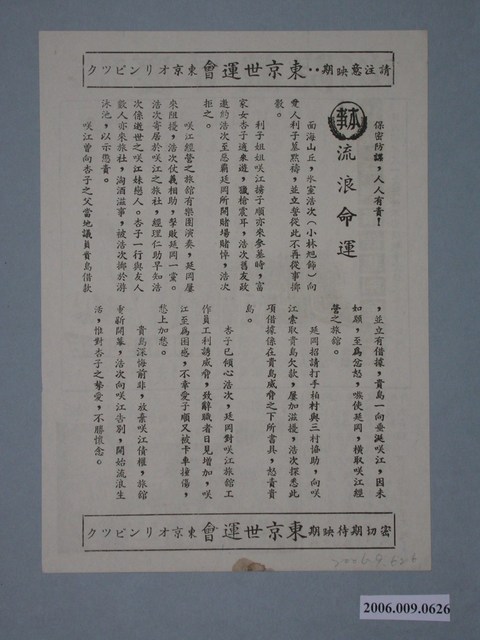 請注意映期‥東京世運會東京オリンピック
保密防諜，人人有責！
本事
流浪命運
面海山丘，氷室浩次（小林旭飾）向
愛人利子墓默禱，並立誓從此不再從事擲
骰。
利子姐姐咲江携子順亦來參墓時，富
家女杏子適來遊，獵槍震耳，浩次舊友政
邀約浩次至惡覇廷岡所開賭場賭悼，浩次
拒之。
咲江經營之旅館有樂團演奏，廷岡屢
來阻擾，浩次仗義相助，擊敗廷岡一黨。
浩次寄居於咲江之旅社，經理仁助早知浩
次係逝世之咲江妹戀人。杏子一行與友人
數人亦來旅社，洶酒滋事，被浩次擲於游
泳池，以示懲責。
咲江曾向杏子之父當地議員貴島借款
，並立有借據，貴島一向垂涎咲江，因未
如願，至爲忿怒，嗾使廷岡，橫取咲江經
營之旅館。
廷岡招請打手柏村與三村協助，向咲
江索取貴島欠款，屢加滋擾，浩次探悉此
項借據係在貴島威脅之下所書具，怒責貴
島。
杏子已傾心浩次，廷岡對咲江旅館工
作員工利誘威脅，致辭職者日見增加，咲
江至爲困惑，不幸愛子順又被卡車撞傷，
愁上加愁。
貴島深悔前非，放棄咲江債權，旅館
重新開幕，浩次向咲江告別，開始流浪生
活，惟對杏子之摯愛，不勝懷念。
密切期待映期東京世運會東京オリンピック
2006.009.0626